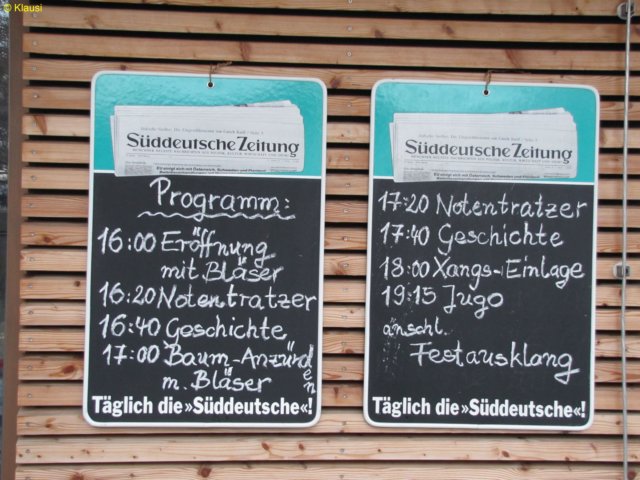 © Klausi
Süddeutsche Zeitung
Programm:
16:00 Eröffnung
mit Bläser
16:20 Notentratzer
16:40 Geschichte
17:00 Baum-Anzünden
m. Bläser
Täglich die »Süddeutsche«!
Süddeutsche Zeitung
17:20 Notentratzer
17:40 Geschichte
18:00 Xangs-Einlage
19:15 Jugo
anschl.
Festausklang
Täglich die »Süddeutsche«!